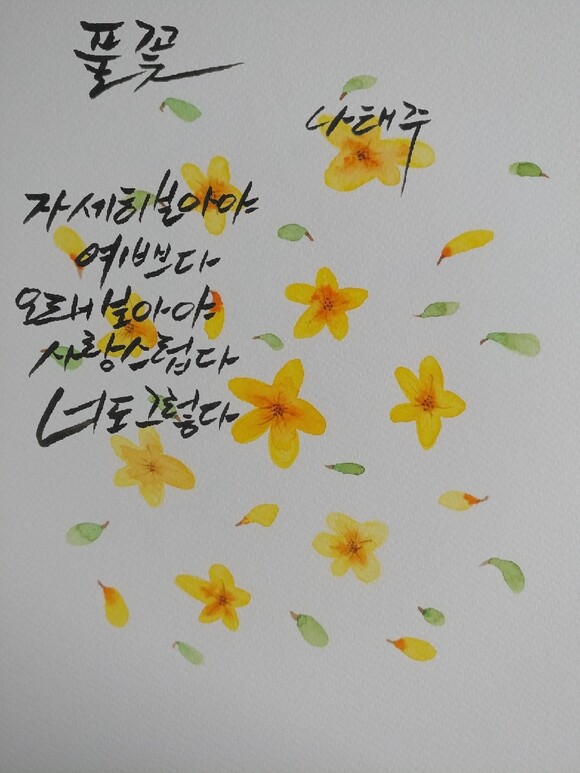 풀꽃
나태주
자세히 보아야
예쁘다
오래 보아야
사랑스럽다
너도 그렇다